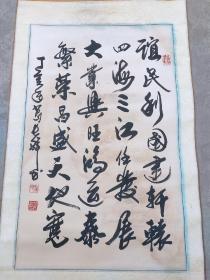 谊民利国建轩辕
四海三江任发展
大业兴旺鸿运泰
繁荣昌盛天地宽
丁亥年
书